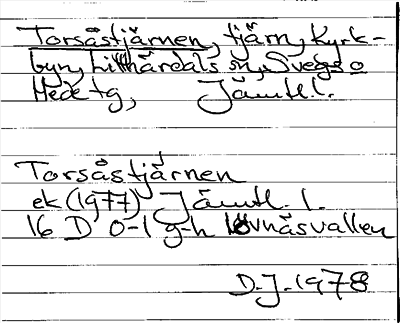 Torsåstjärnen, tjärn, Kyrk-
byn, Lillhärdals sn, Svegs o
Hede tg, Jämtl.l.
Torsåstjärnen
ek (1977) Jämtl. l.
16 D 0-1 g-h Lövnäsvallen
D.J. 1978